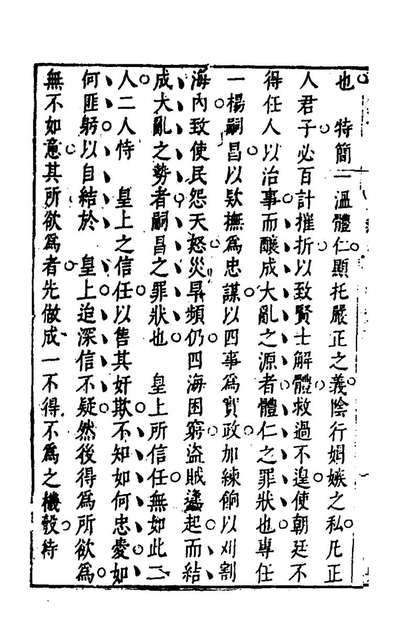 也　特簡一溫體仁顯托嚴正之義陰行娼嫉之私凡正
人君子必百計摧折以致賢士解體救過不遑使朝廷不
得任人以治事而釀成大亂之源者體仁之罪狀也專任
一楊嗣昌以欵撫為忠謀以四事為實政加練餉以刈割
海內致使民怨天怒災旱頻仍四海困窮盜賊蠭起而結
成大亂之勢者嗣昌之罪狀也　皇上所信任無如此二
人二人恃　皇上之信任以售其奸欺不知如何忠愛如
何匪躬以自結於　皇上迫深信不疑然後得為所欲為
無不如意其所欲為者先做成一不得不為之機彀待